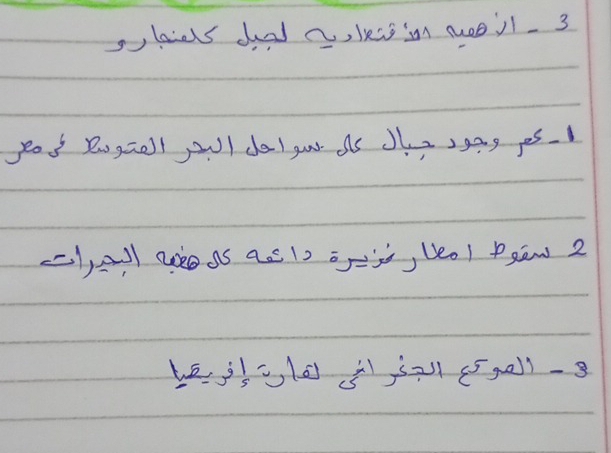 3 - الأهميه الأقتصاديه لجبل كلمنجارو
1- عدم وجود جبال على سواحل البحر المتوسط في مصر
2 سقوط امطار غزيرة دائمه على هضبه البحيرات
3 - الموقع الجغرافي لقارة إفريقيا